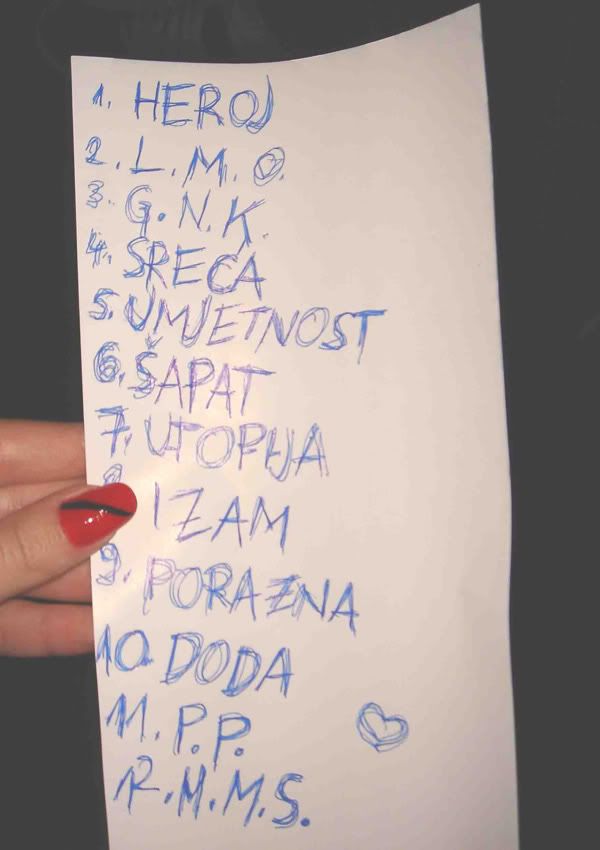 1. HEROJ
2. L. M. O.
3. G. N. K.
4. SREĆA
5. UMJETNOST
6. ŠAPAT
7. UTOPIJA
IZAM
9. PORAZNA
10. DODA
11. P.P.
12. M. M. S.